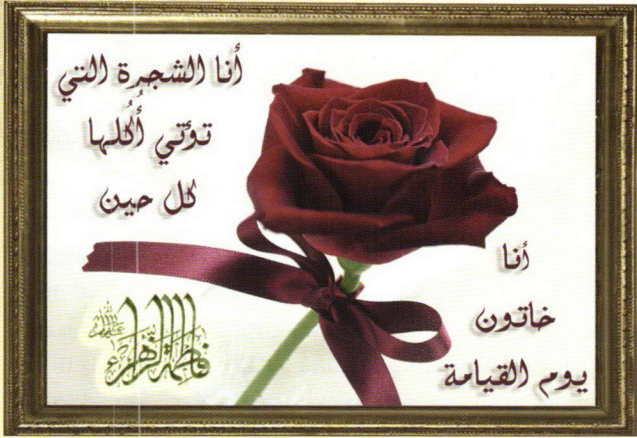 أنا الشجرة التي
تؤتي أُكُلها
كل حين
أنا
خاتون
يوم القيامة
فاطمة الزهراء